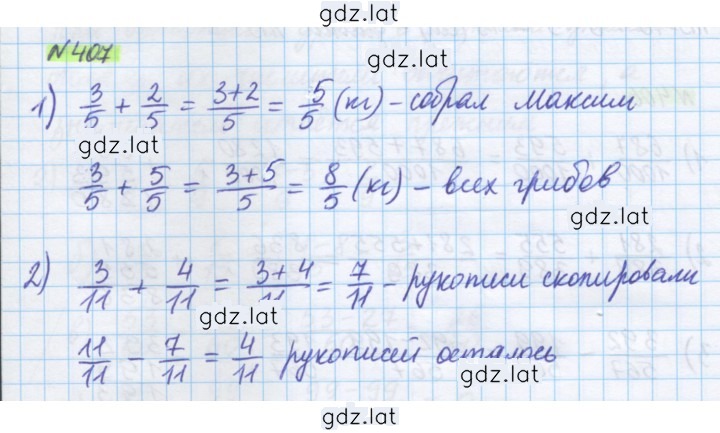 gdz.lat
№407
gdz.lat
1) 3/5 + 2/5 = 3+2/5 = 5/5 (кг) - собрал Максим
gdz.lat
3/5 + 5/5 = 3+5/5 = 8/5 (кг) - всех грибов
gdz.lat
2) 3/11 + 4/11 = 3+4/11 = 7/11 - рукописи скопировали
gdz.lat
11/11 - 7/11 = 4/11 рукописей осталось
gdz.lat
gdz.lat